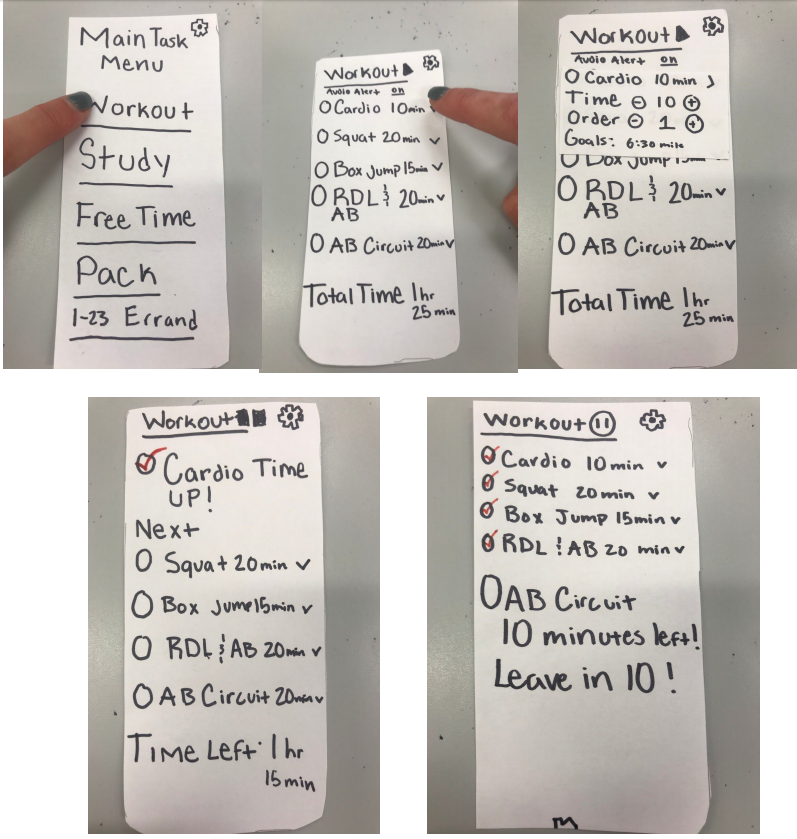 Main Task
Menu
Workout
Study
Free Time
Pack
1-23 Errand
Workout
Audio Alert on
Cardio 10min
Squat 20min
Box Jump 15min
RDL & 20min
AB
AB Circuit 20min
Total Time 1hr
25 min
Workout
Audio Alert on
Cardio 10min
Time - 10 +
Order - 1 +
Goals: 6:30 mile
Box Jump 15min
RDL & 20min
AB
AB Circuit 20min
Total Time 1hr
25 min
Workout
Cardio Time
UP!
Next
Squat 20min
Box Jump 15min
RDL & AB 20min
AB Circuit 20min
Time Left: 1 hr
15 min
Workout
Cardio 10min
Squat 20min
Box Jump 15min
RDL & AB 20 min
AB Circuit
10 minutes left!
Leave in 10!